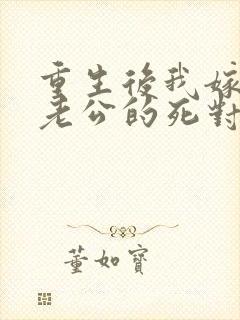 重生後我嫁
老公的死對
董如寶